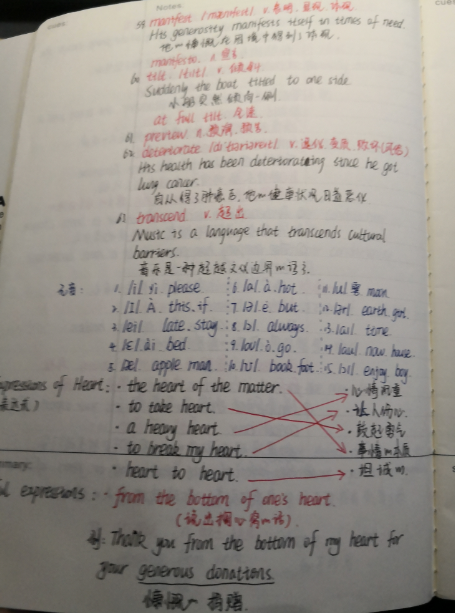 Notes:
59 manifest /'mænɪfest/ v. 表明,显现,体现
His generosity manifests itself in times of need.
他的慷慨在困境中得到了体现.
manifesto. n. 宣言
60 tilt /tɪlt/ v. 倾斜
Suddenly the boat tilted to one side.
小船突然倾向一侧
at full tilt. 全速
61. preview n. 预
62 deteriorate v. 恶化
His health has been deteriorating since he got
lung cancer.
自从得了肺癌后,他的健康状况日益恶化
63 transcend v. 超出
Music is a language that transcends cultural
barriers.
音乐是一种超越文化边界的语言.
元音: 1. please
2. this. if.
3. late. stay.
4. bed.
5. apple man.
6. hot.
7. but.
8. always.
9. go.
10. book. foot.
11. man.
12. earth. girl.
13. time.
14. now. have.
15. enjoy. boy.
expressions of Heart: · the heart of the matter. · 心情沉重
· to take heart. · 让人伤心
· a heavy heart · 鼓起勇气
· to break my heart. · 事情的本质
· heart to heart. · 坦诚的
mmary:
ul expressions: · from the bottom of one's heart.
(说出掏心窝的话).
例: Thank you from the bottom of my heart for
your generous donations.
慷慨的捐赠.